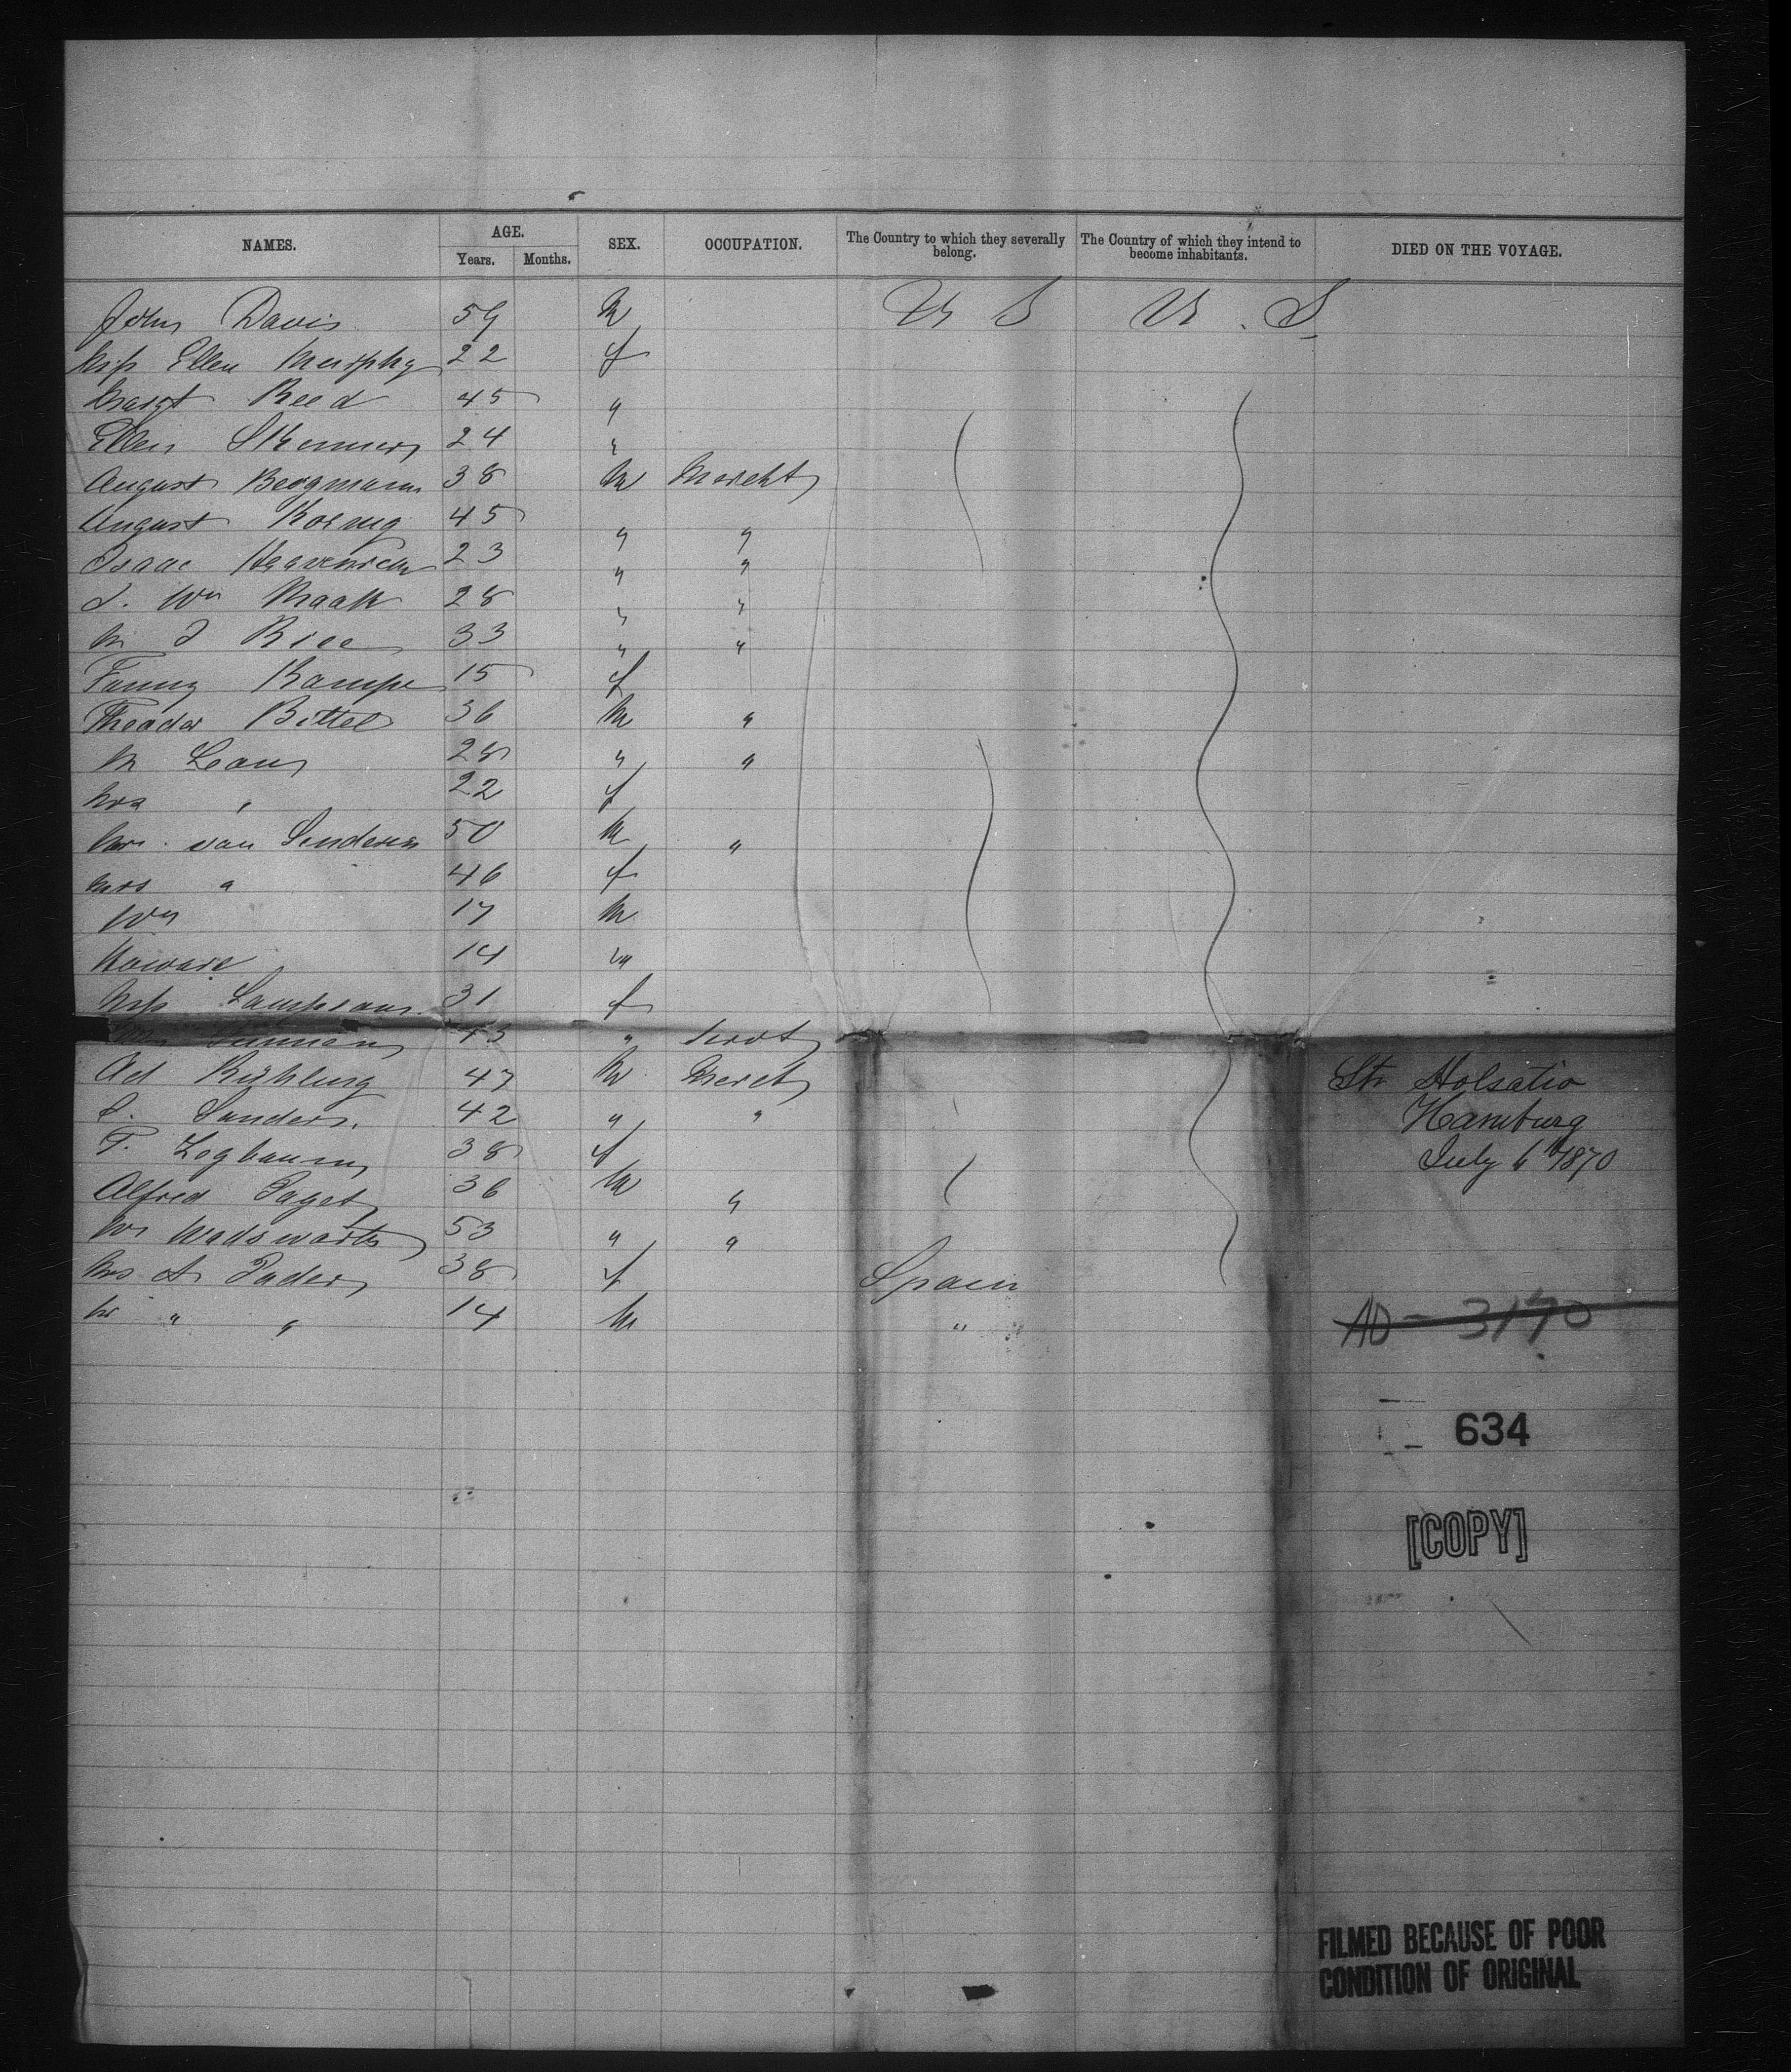 NAMES. AGE. SEX. OCCUPATION. The Country to which they severally belong. The Country of which they intend to become inhabitants. DIED ON THE VOYAGE.
Years. Months.
John Davis 59 M U S U. S.
Miss Ellen Murphy 22 f
Margt Reed 45 "
Ellen Skenners 24 "
August Bergmann 38 M Mercht
August Koenig 45 " "
Isaac Heavenrich 23 " "
S. Wm Maak 28 " "
M J Rice 33 " "
Fanny Kampe 15 f
Theodor Bittel 36 M "
M Leans 28 " "
Mrs " 22 f
Mr. van Sinderen 50 M "
Mrs " 46 f
Wm 17 M
Howard 14 m
Miss Sampson 31 f
43 " Servt
Ad Kühling 47 M Mercht
S. Sanders. 42 " "
T. Zogbaum 38 f
Alfred Paget 36 M "
Mr Wadswarth 53 " "
Mrs A Pader 38 f Spain
M " " 14 M "
Str Holsatia
Hamburg
July 6th 1870
AD - 3170
634
[COPY]
FILMED BECAUSE OF POOR
CONDITION OF ORIGINAL